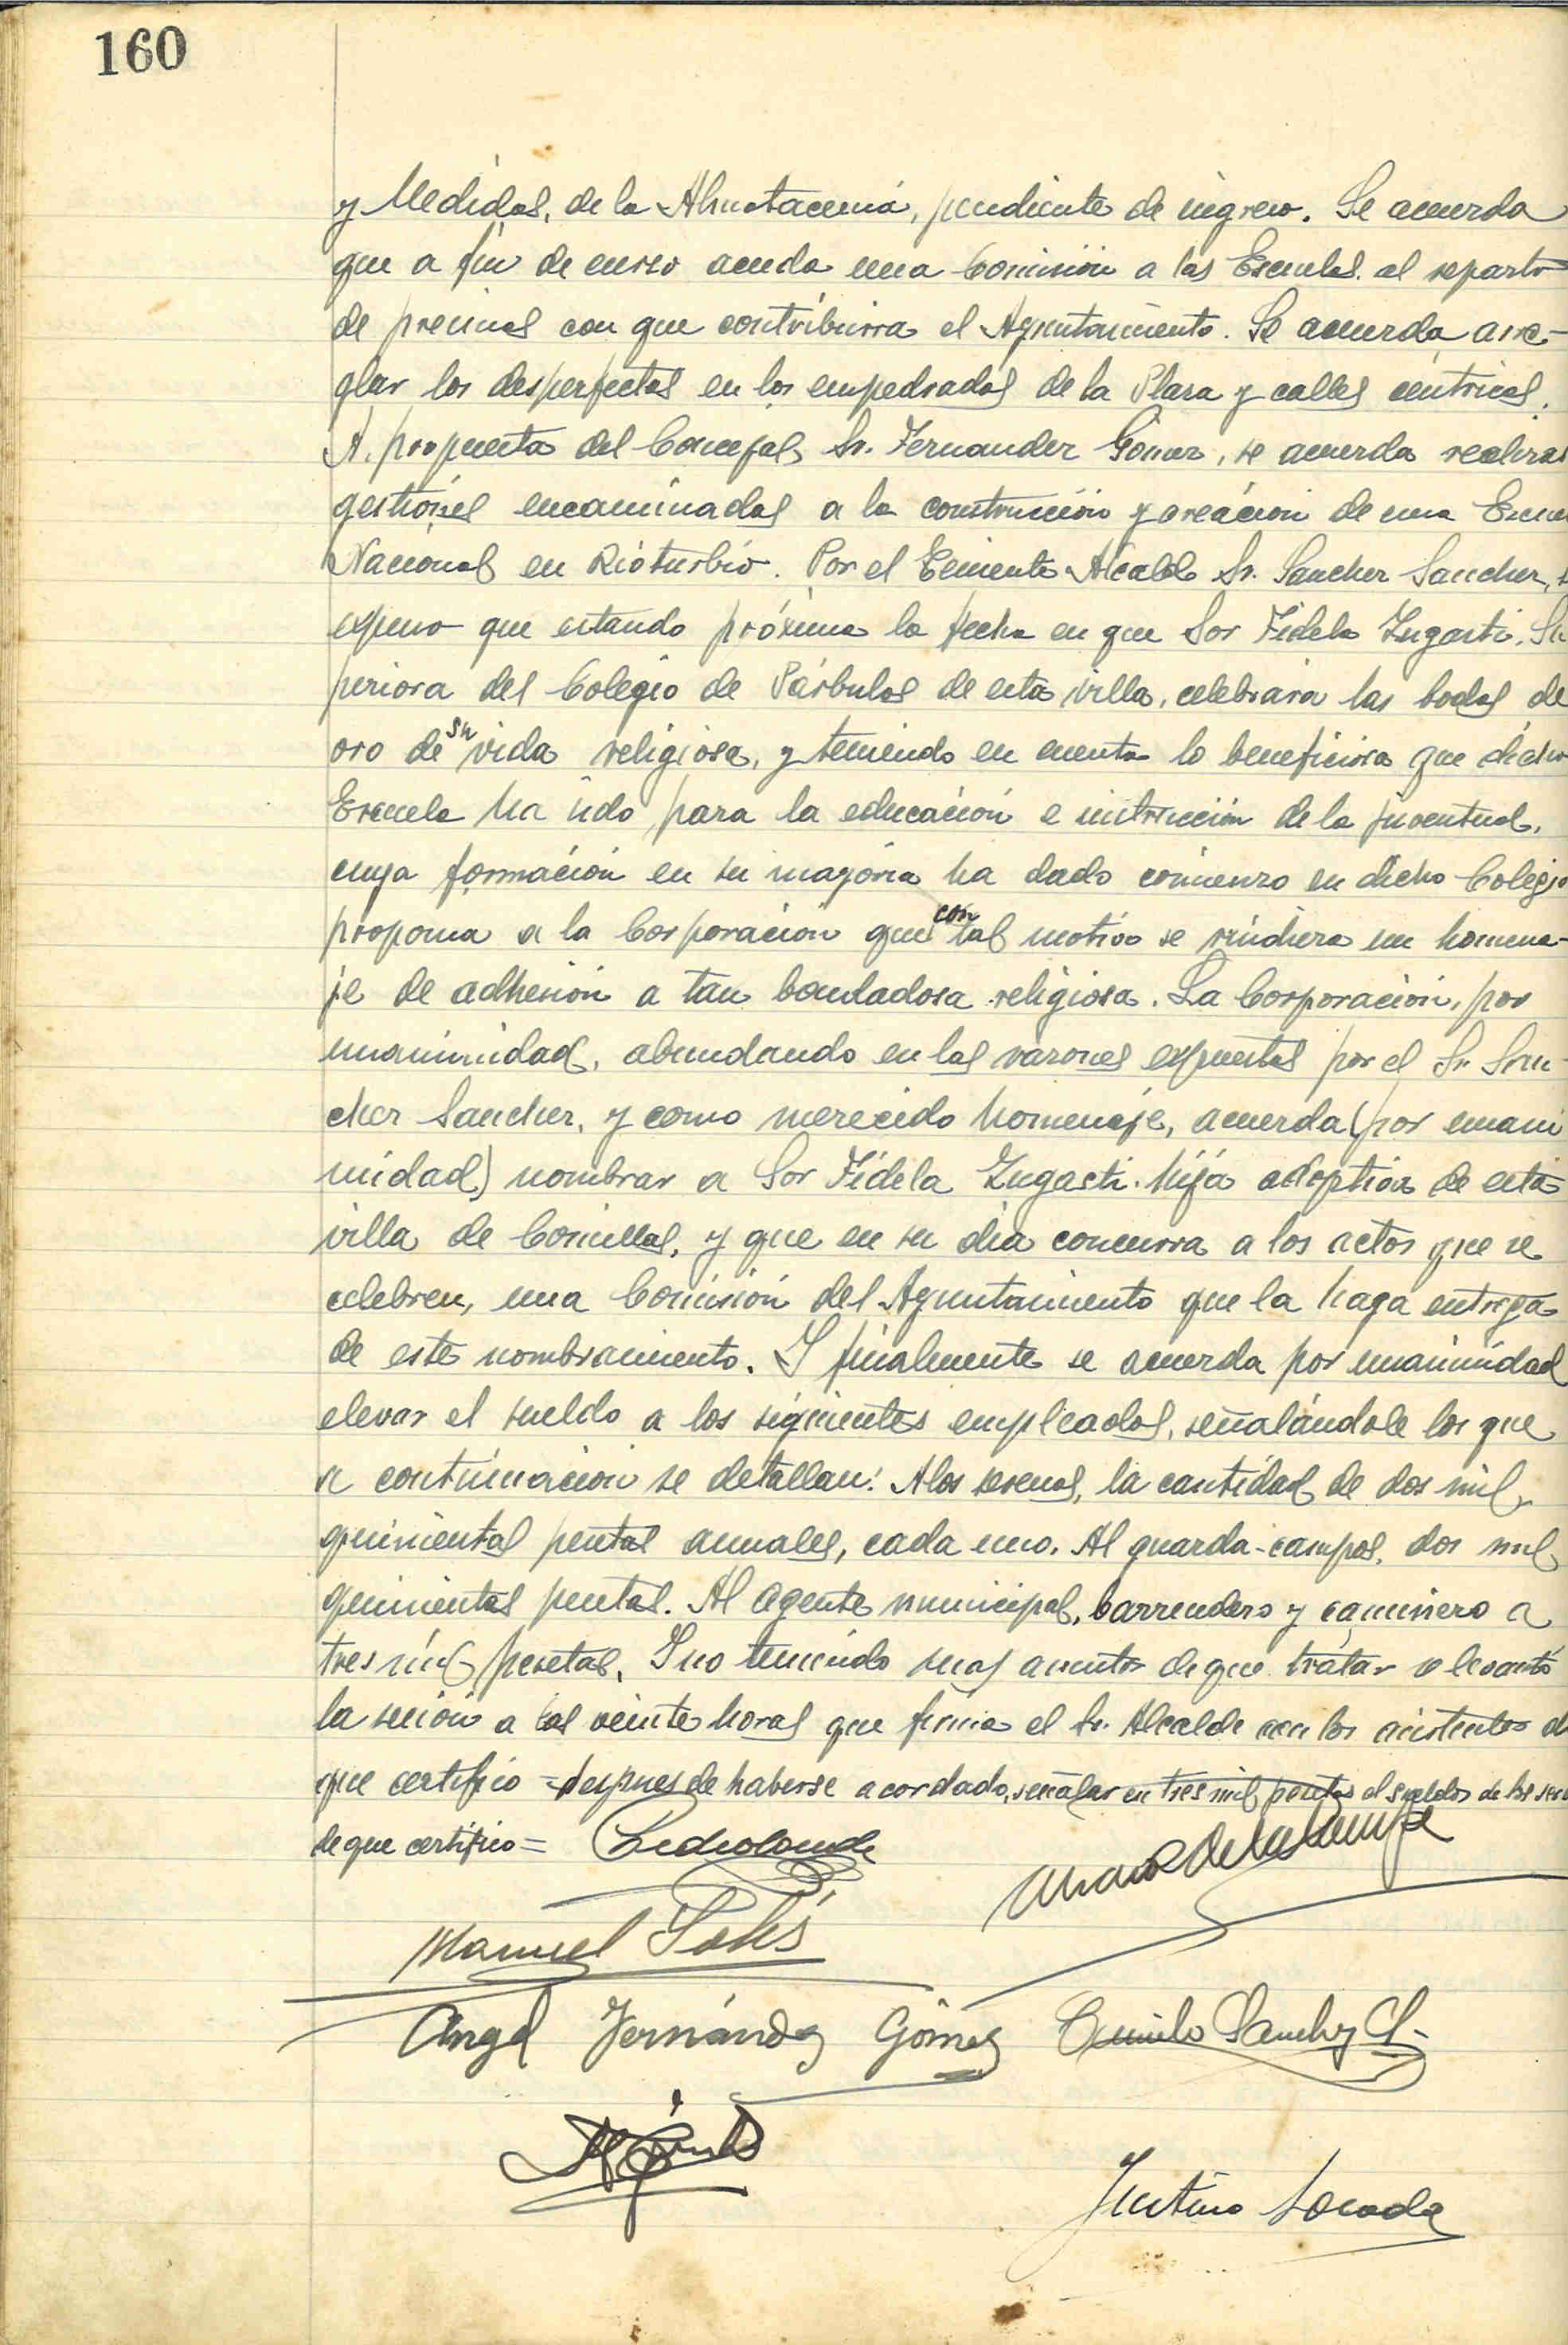 160
y Medidas, de la Almotacenia, pendiente de ingreso. Se acuerda
que a fin de curso acuda una Comisión a las Escuelas al reparto
de premios con que contribuira el Ayuntamiento. Se acuerda arre-
glar los desperfectos en los empedrados de la Plaza y calles centricas.
A. propuesta del Concejal, Sr. Fernandez Gomez, se acuerda realizar
gestiónes encaminadas a la construcción y creácion de una Escue
Nacional en Rioturbio. Por el Teniente Alcalde Sr. Sanchez Sanchez,
expuso que estando próxima la fecha en que Sor Fidela Zugasti, Su
periora del Colegio de Párbulos de esta villa, celebrara las bodas de
oro de su vida religiosa, y teniendo en cuenta lo beneficiosa que dicha
Escuela ha sido para la educación e instrucción de la juventud,
cuya formación en su mayoria ha dado comienzo en dicho Colegio
proponia a la Corporación que con tal motivo se rindiera un homena-
je de adhesión a tan bondadosa religiosa. La Corporación, por
unanimidad, abundando en las razones expuestas por el Sr. San-
chez Sanchez, y como merecido homenaje, acuerda (por unani
midad) nombrar a Sor Fidela Zugasti hija adoptiva de esta
villa de Comillas, y que en su dia concurra a los actos que se
celebren, una Comisión del Ayuntamiento que la haga entrega
de este nombramiento. Y finalmente se acuerda por unanimidad
elevar el sueldo a los siguientes empleados, señalándole los que
a continuación se detallan: A los serenos, la cantidad de dos mil
quinientas pesetas anuales, cada uno. Al guarda-campos, dos mil
quinientas pesetas. Al agente municipal, barrendero y caminero a
tres mil pesetas. Y no teniendo mas asuntos de que tratar se levantó
la sesión a las veinte horas que firma el Sr. Alcalde con los asistentes d
que certifico = despues de haberse acordado, señalar en tres mil pesetas el sueldos de los sere
de que certifico =
Manuel
Angel Fernández Gómez Sanchez
Justino Losada